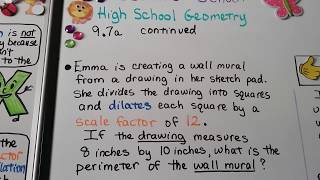 School
High School Geometry
9.7a continued
is not
by because
n't
to the
X
Factor
lation
• Emma is creating a wall mural
from a drawing in her sketch pad.
She divides the drawing into squares
and dilates each square by a
scale factor of 12.
If the drawing measures
8 inches by 10 inches, what is the
perimeter of the wall mural?